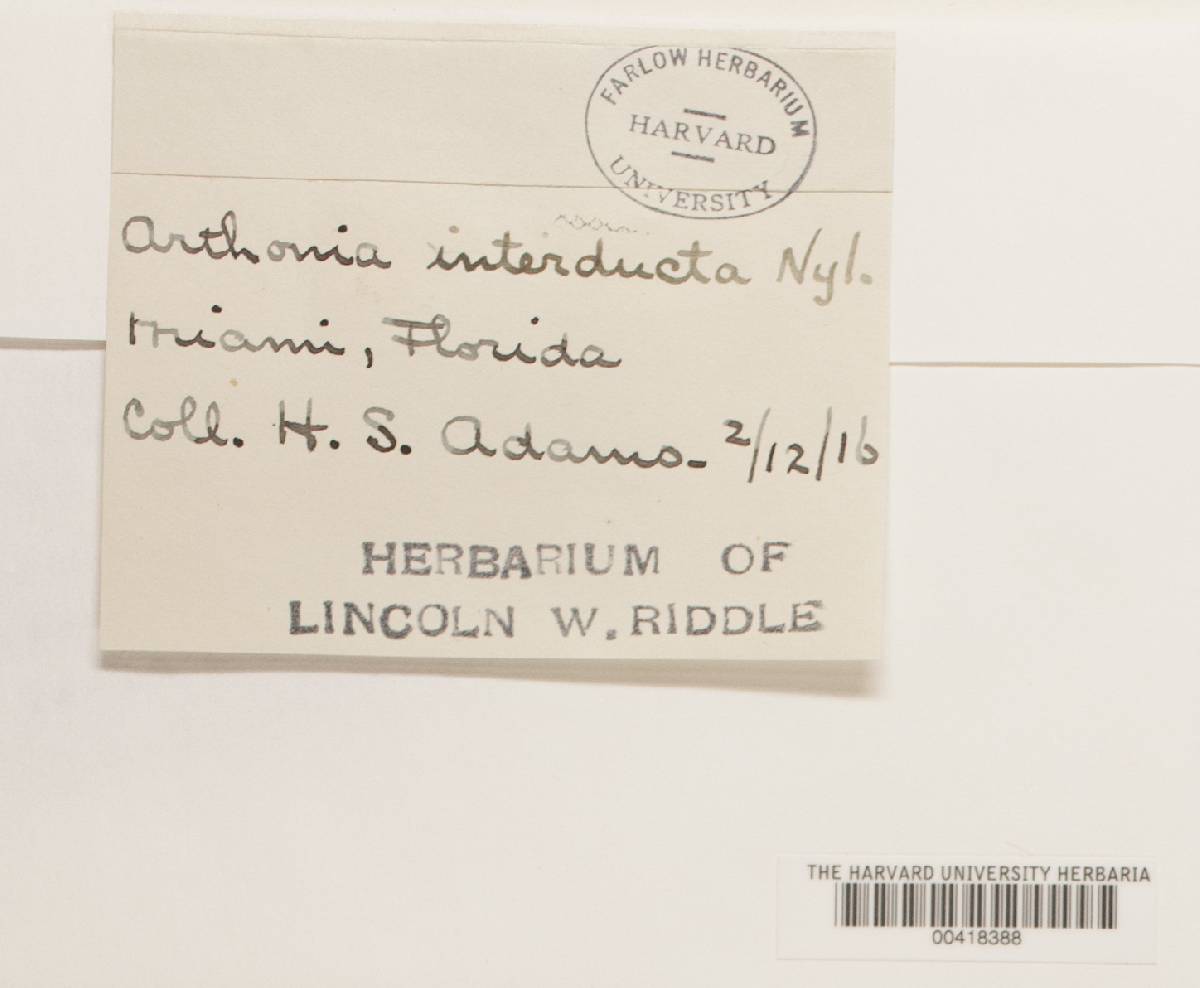 FARLOW HERBARIUM
HARVARD
UNIVERSITY
Arthonia interducta Nyl.
Miami, Florida
Coll. H. S. Adams - 2/12/16
HERBARIUM OF
LINCOLN W. RIDDLE
THE HARVARD UNIVERSITY HERBARIA
00418388